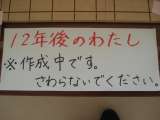 12年後のわたし
※作成中です。
さわらないでください。